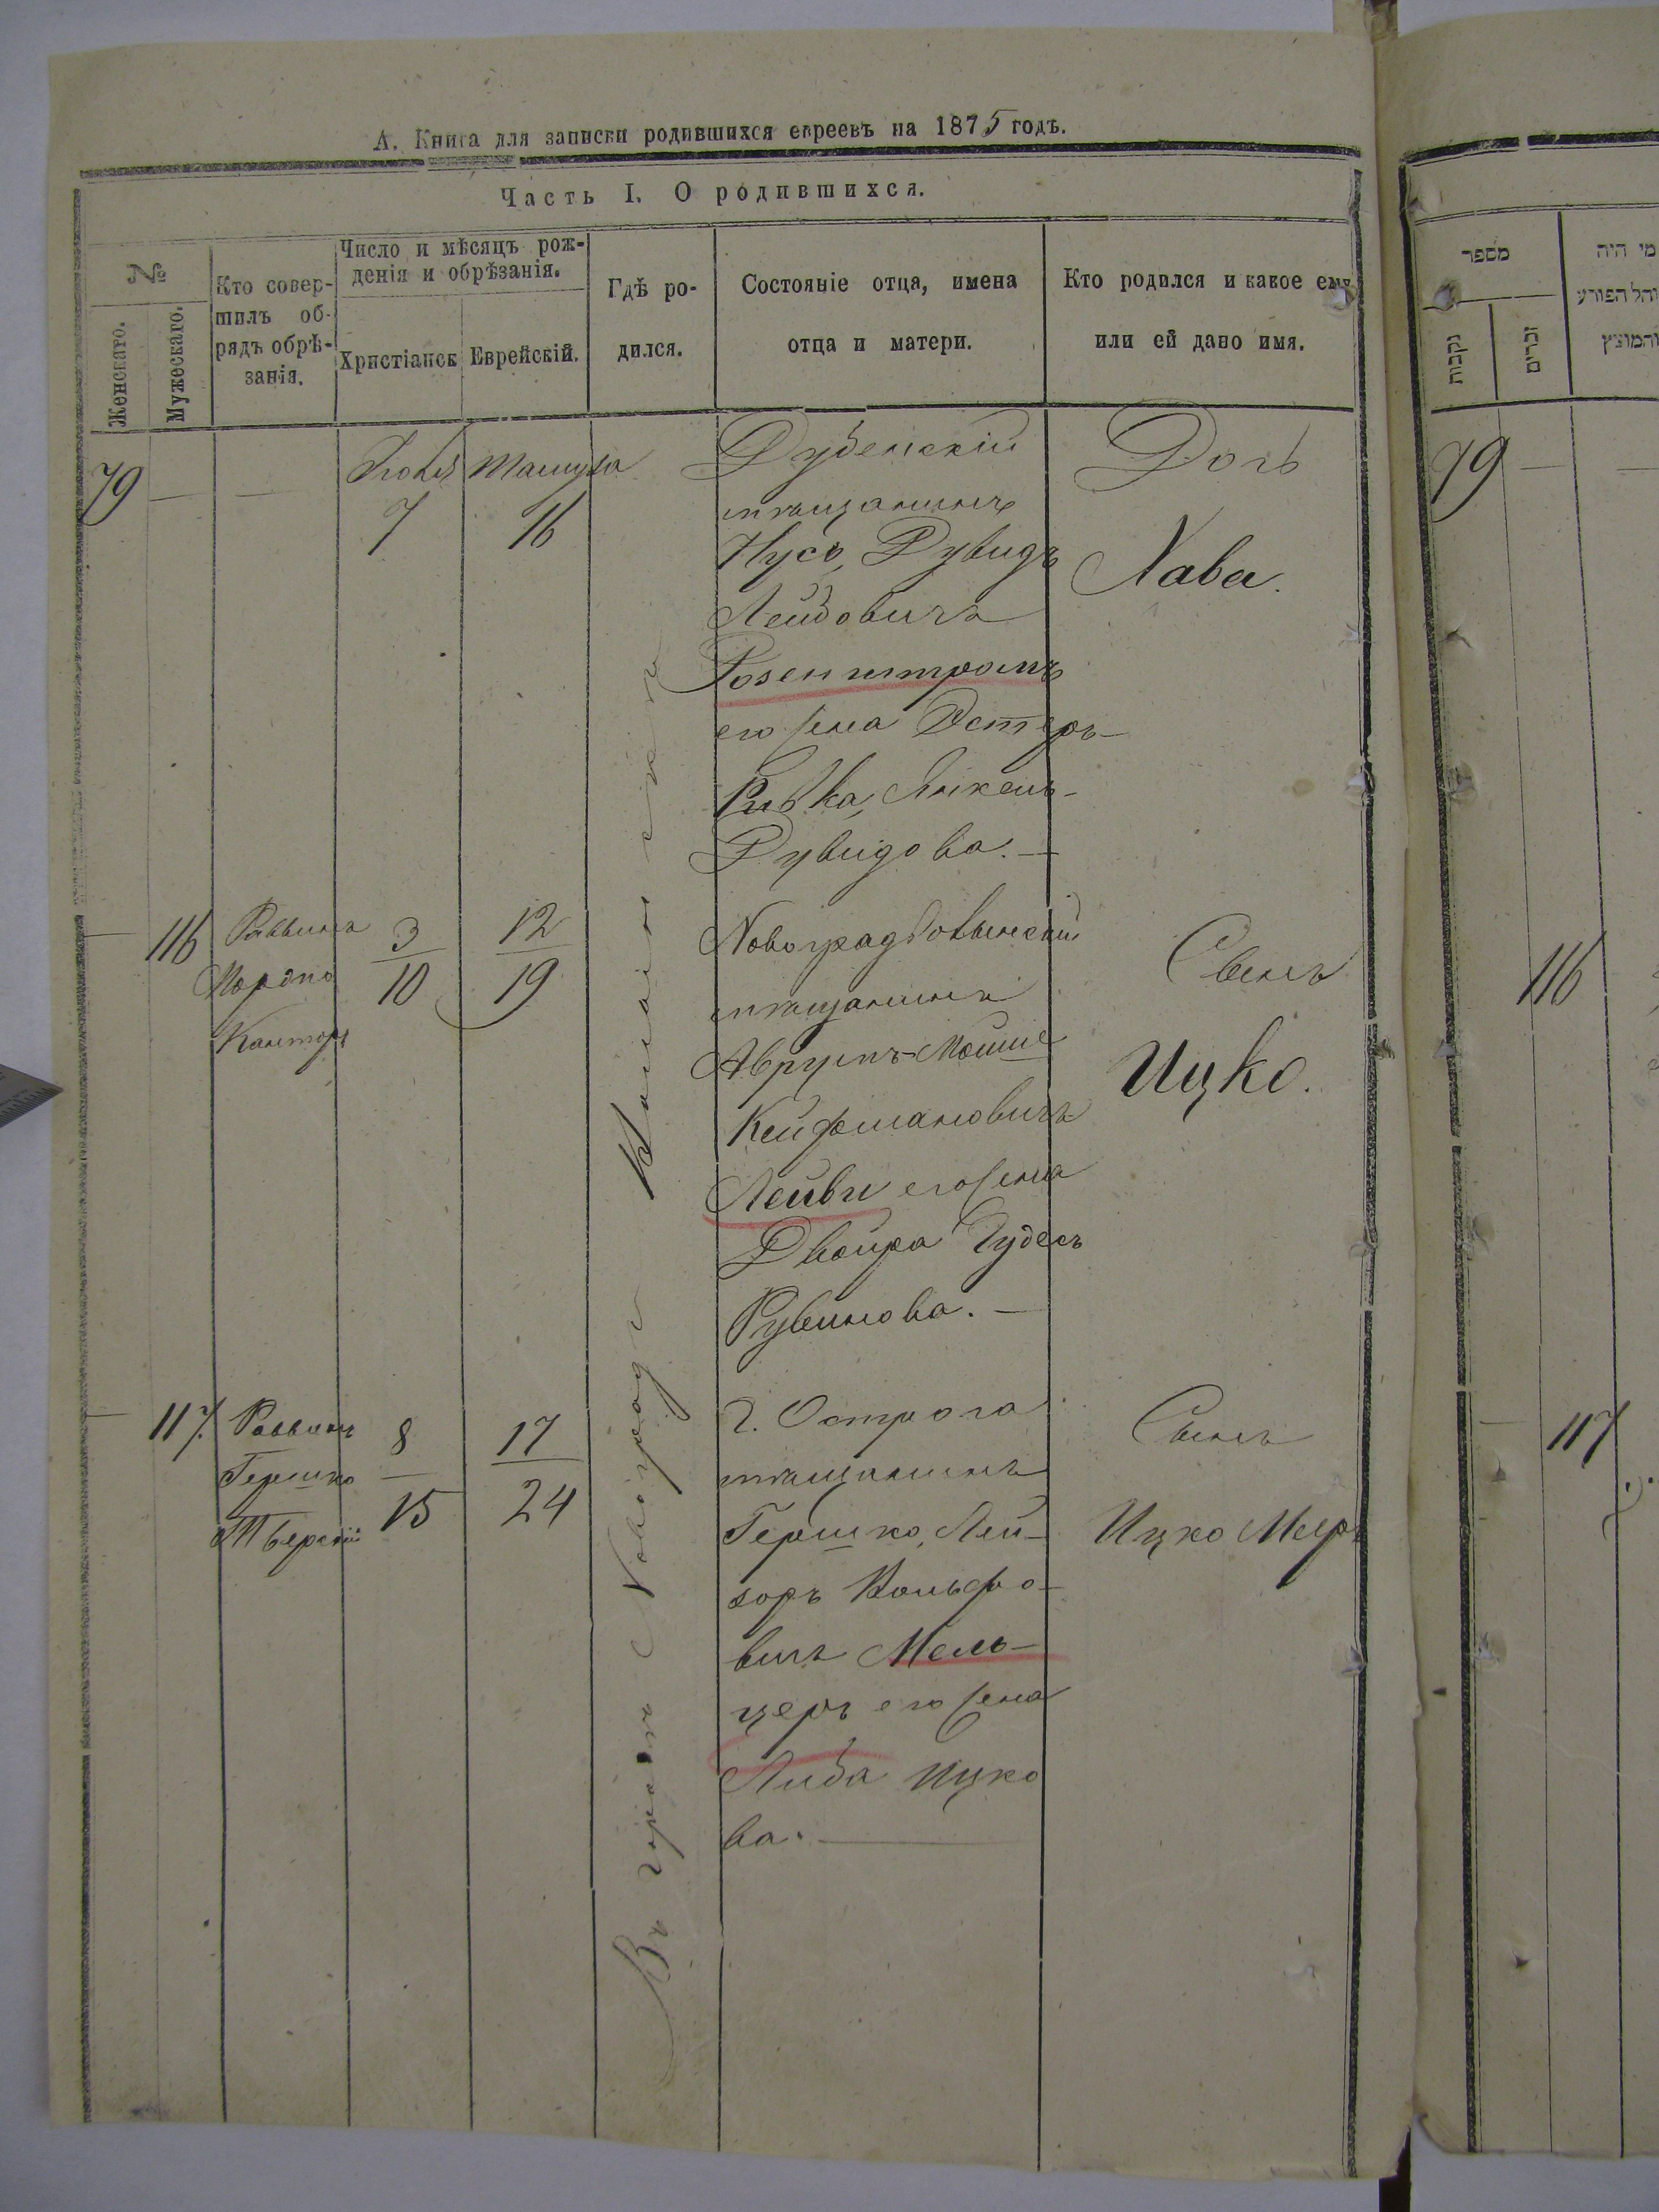 А. Книга для записки родившихся евреевъ на 1875 годъ.
Часть I. О родившихся.
№
Женскаго.
Мужескаго.
Кто совер-
шилъ об-
рядъ обрѣ-
занія.
Число и мѣсяцъ рож-
денія и обрѣзанія.
Христіанск
Еврейскій.
Гдѣ ро-
дился.
Состояніе отца, имена
отца и матери.
Кто родился и какое ему
или ей дано имя.
79
Іюля
7
Тамуза
16
Дубенскій
мѣщанинъ
Нусъ, Дувидъ
Лейбовичъ
Розенштромъ
его жена Эстеръ-
Ривка,
Дувидова. —
Дочь
Хава.
116
Раввинъ
Мордко
Канторъ
3
10
12
19
Новоградволынскій
мѣщанинъ
Аврумъ-Мойше
Лейви его жена
Двойра
Рувинова. —
Сынъ
Ицко.
117.
Раввинъ
Гершко
Тверскій
8
15
17
24
г. Острога
мѣщанинъ
Гершко, Лей-
зоръ Вольфо-
вичъ Мель-
церъ его жена
Либа Ицко
ва. —
Сынъ
Ицко Мееръ
Въ городѣ Новоградѣ Волынскѣ
מספר
נקבות
זכרים
מי היה
המוהל הפורע
והמוצץ
79
116
117